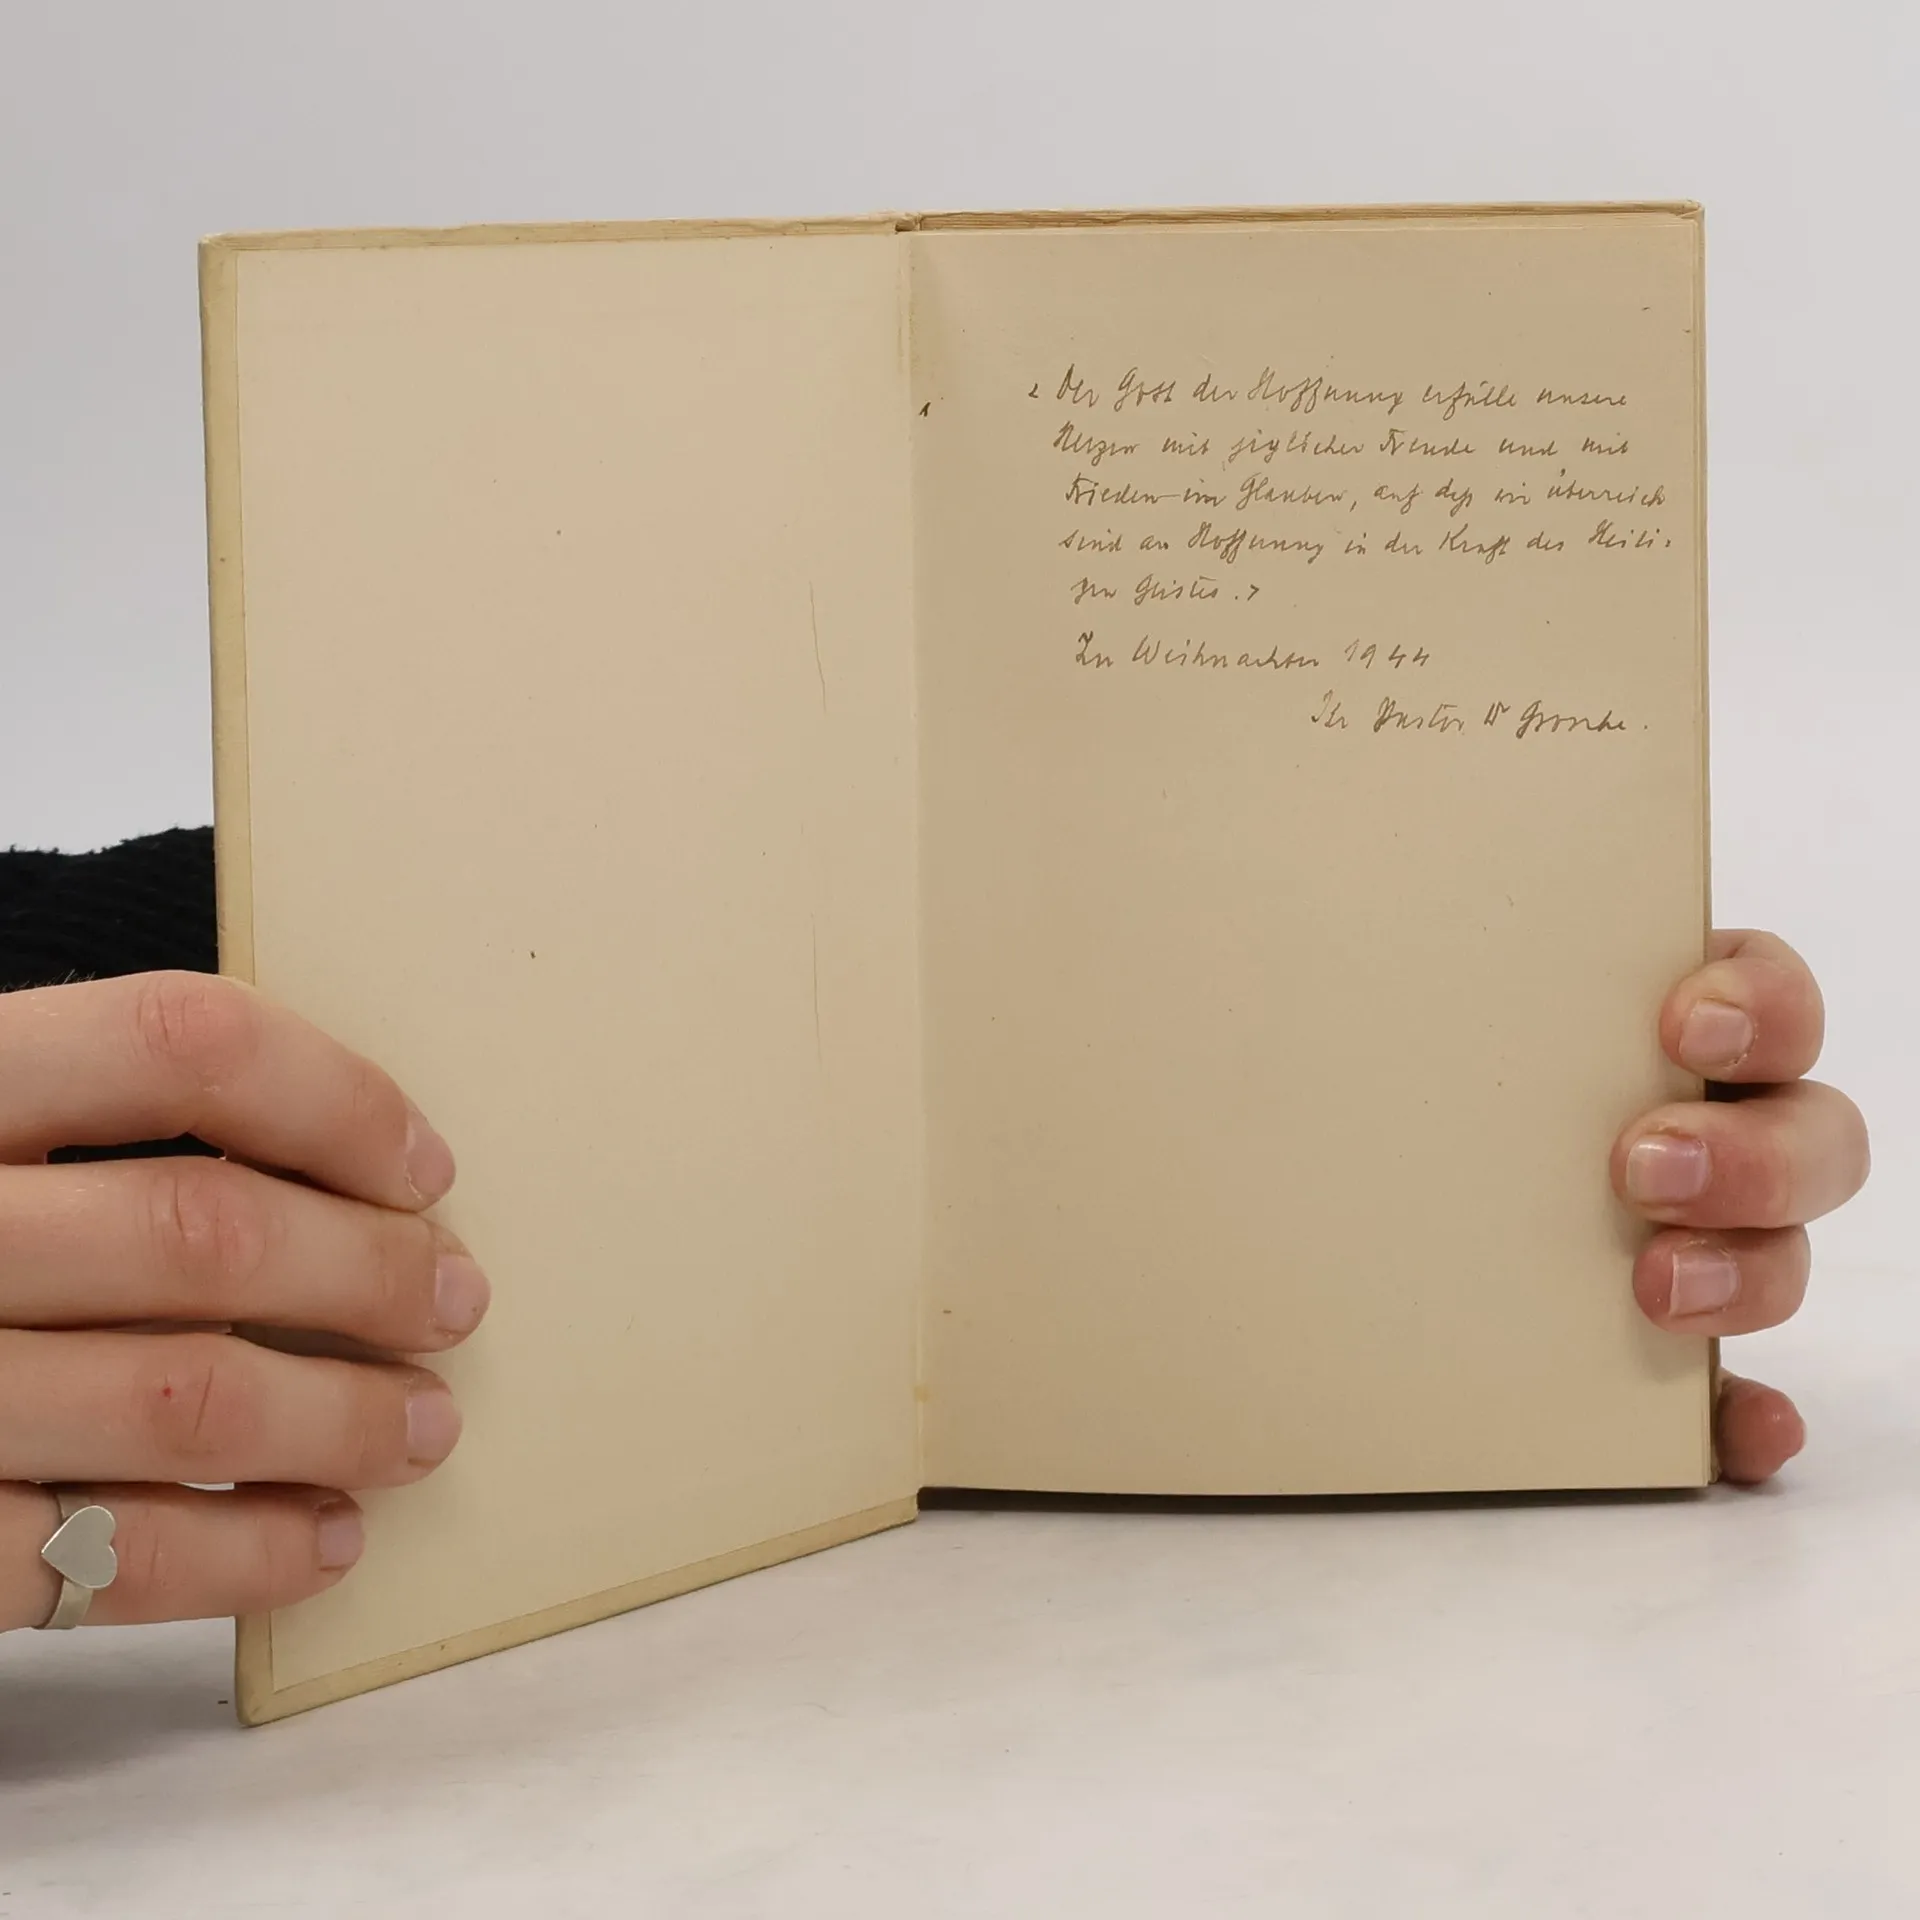 ‹ Der Gott der Hoffnung erfülle unsere
Herzen mit jeglicher Freude und mit
Frieden im Glauben, auf daß wir überreich
sind an Hoffnung in der Kraft des Heili-
gen Geistes. ›
Zu Weihnachten 1944
Ihr Pastor Dr Grosche.